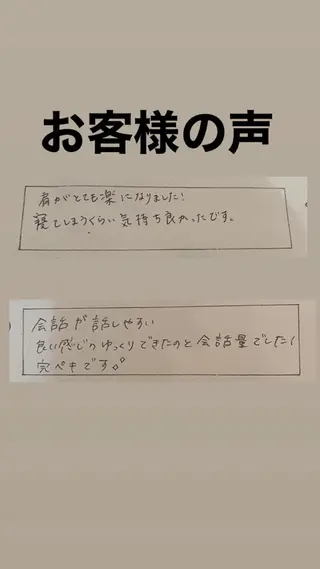 お客様の声
肩がとても楽になりました!
寝てしまうくらい気持ち良かったです。
会話が話しやすい
良い感じのゆっくりできたのと会話量でした!
完ペキです。